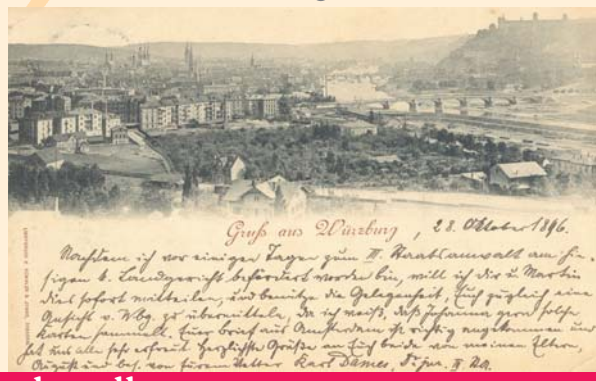 Gruß aus Würzburg, 28. Oktober 1896.
Nachdem ich vor einigen Tagen zum II. Staatsanwalt am hie-
sigen k. Landgericht befördert worden bin, will ich dir u. Martin
dies sofort mitteilen, und benütze die Gelegenheit, Euch zugleich eine
Ansicht v. Wbg. zu übermitteln, da ich weiß, daß Johanna gern solche
Karten sammelt. Euer Brief aus Amsterdam ist richtig angekommen und
hat uns alle sehr erfreut. Herzlichste Grüße an Euch beide von meinen Eltern,
August und bes. von Eurem Vetter Karl Dames, Dr. jur. II. StA.